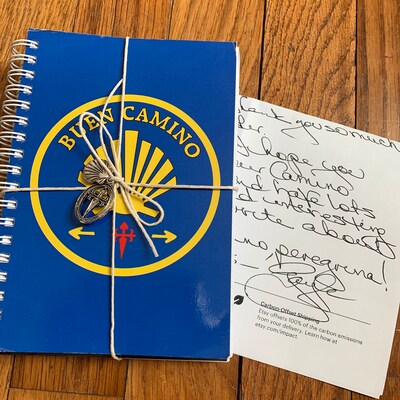 BUEN CAMINO
thank you so much
I hope you
Camino
and have lots
interesting
write about
no peregrina!
Carbon Offset Shipping
Etsy offsets 100% of the carbon emissions
from your delivery. Learn how at
etsy.com/impact.